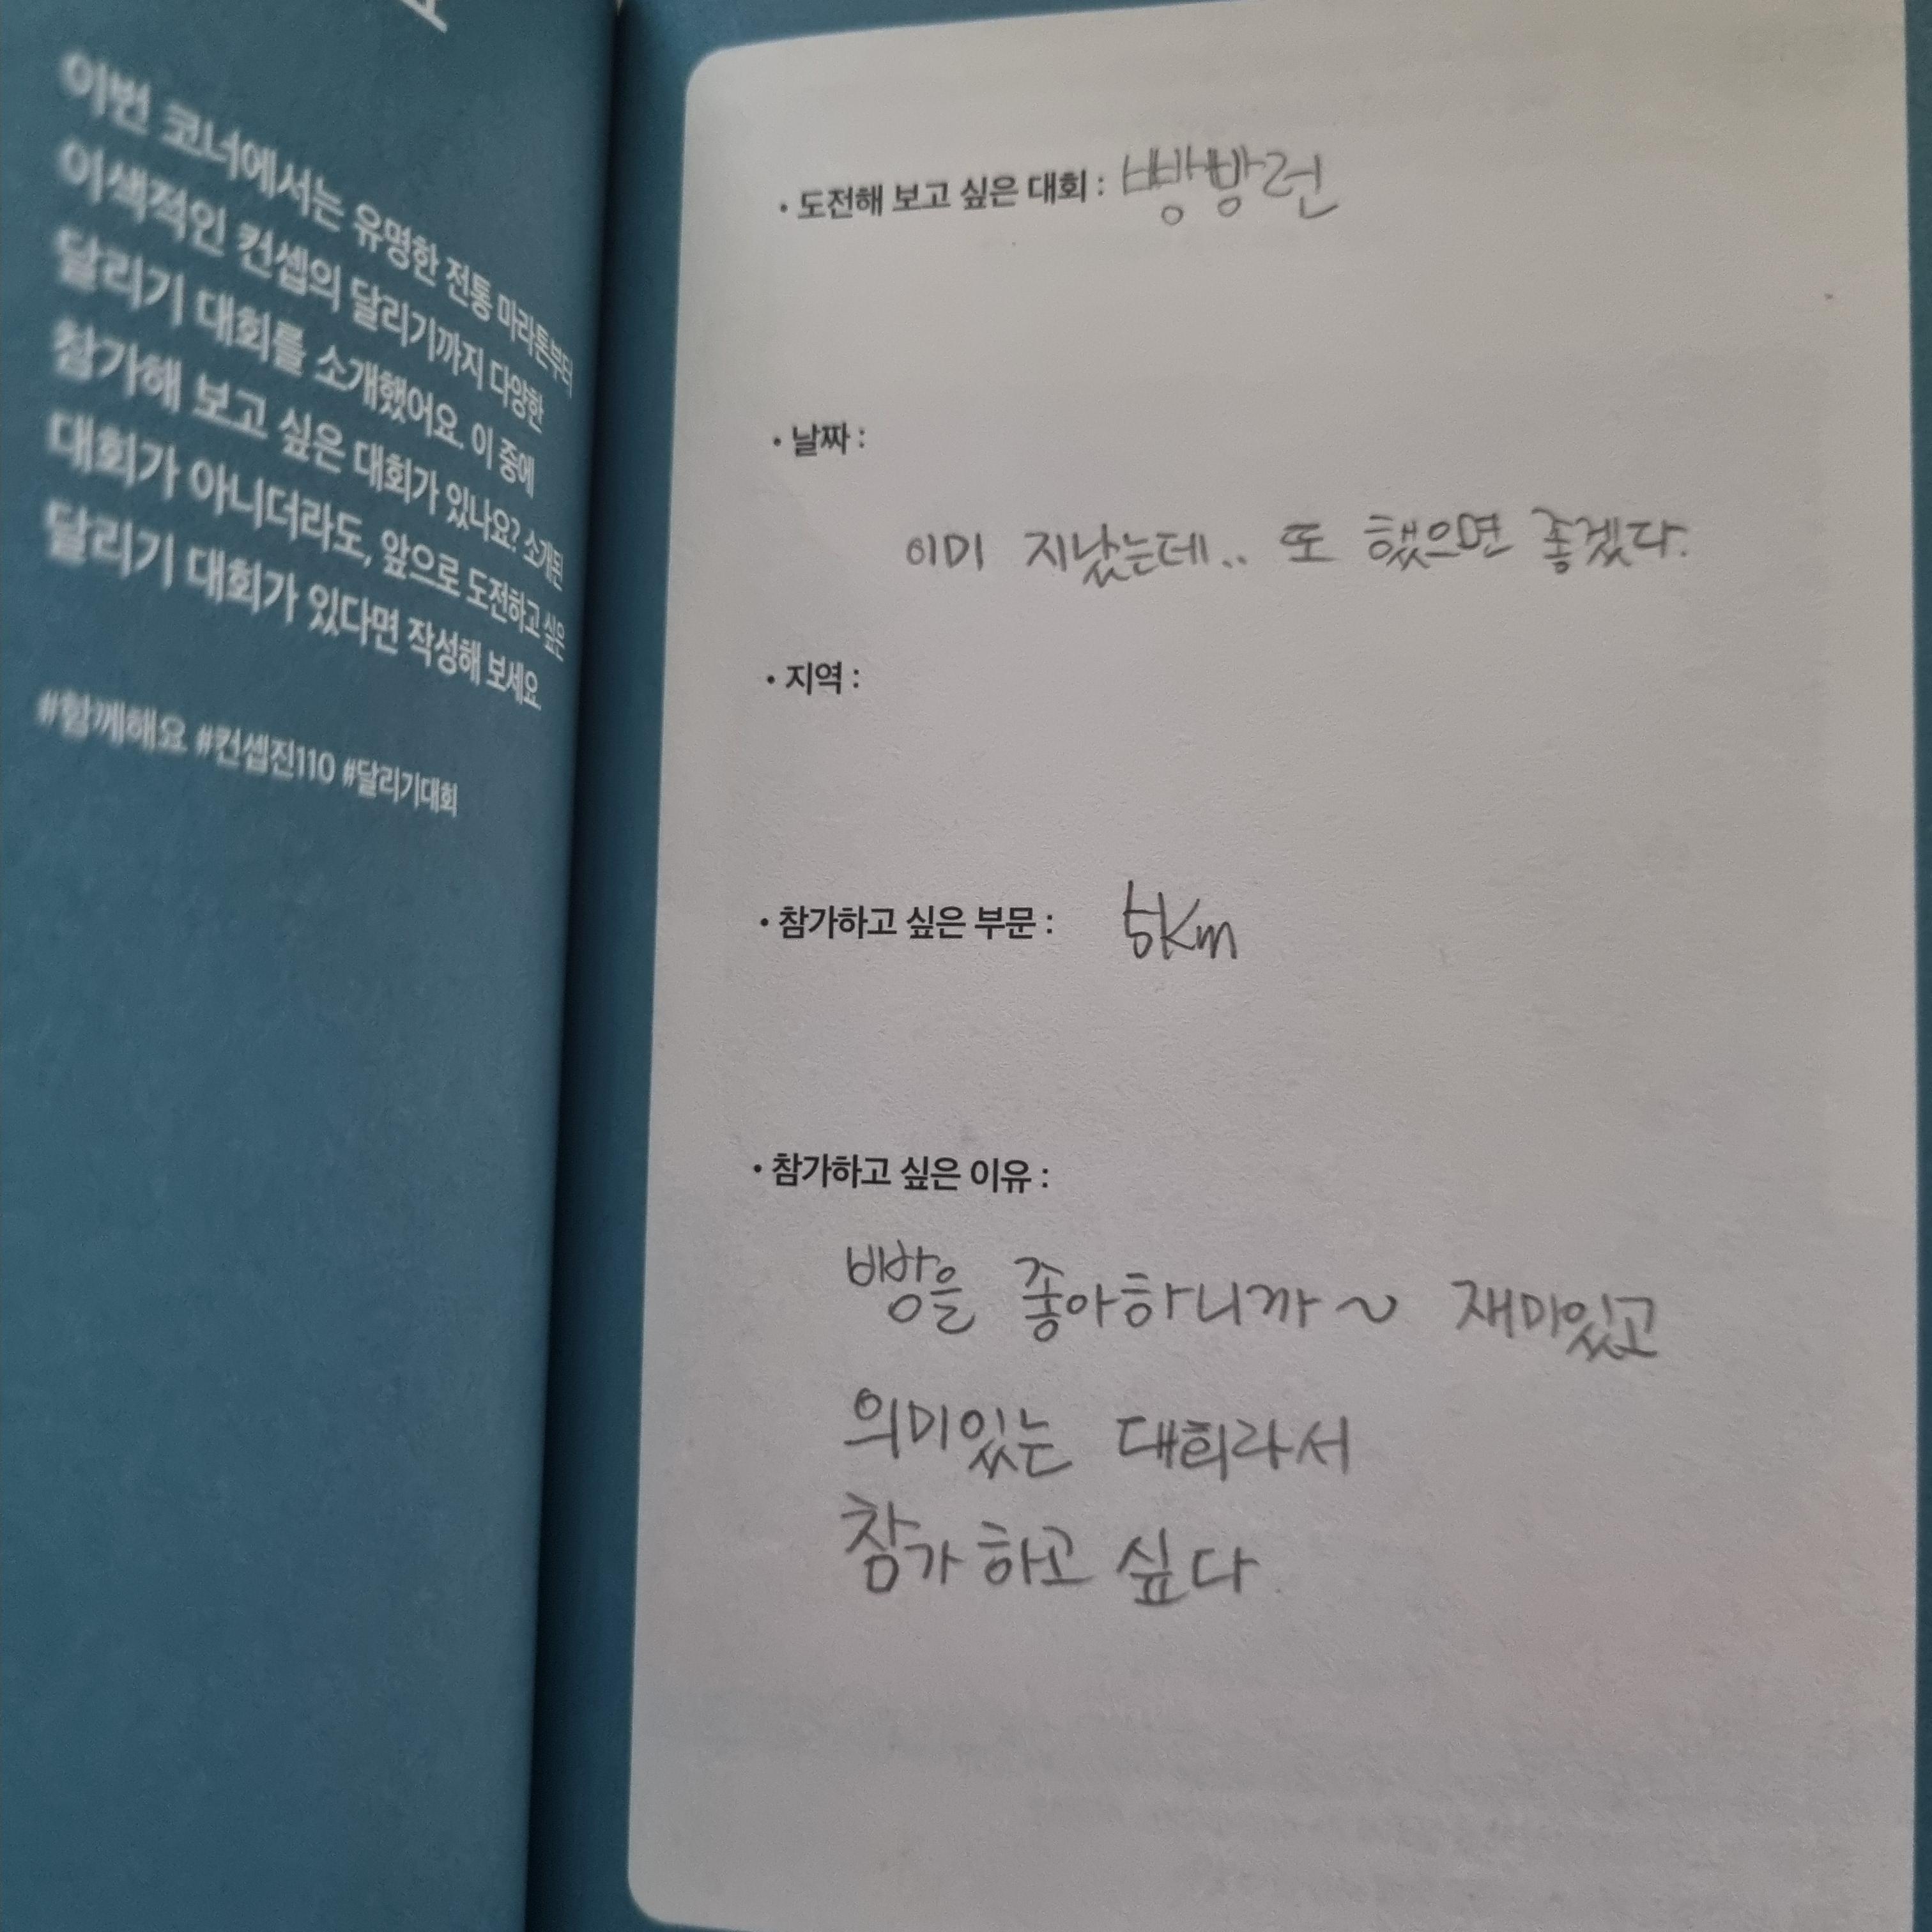 이번 코너에서는 유명한 전통 마라톤부터
이색적인 컨셉의 달리기까지 다양한
달리기 대회를 소개했어요. 이 중에
참가해 보고 싶은 대회가 있나요? 소개된
대회가 아니더라도, 앞으로 도전하고 싶은
달리기 대회가 있다면 작성해 보세요.
#함께해요 #컨셉진110 #달리기대회
• 도전해 보고 싶은 대회 : 빵빵런
• 날짜 :
이미 지났는데.. 또 했으면 좋겠다.
• 지역 :
• 참가하고 싶은 부문 : 5Km
• 참가하고 싶은 이유 :
빵을 좋아하니까~ 재미있고
의미있는 대회라서
참가하고 싶다